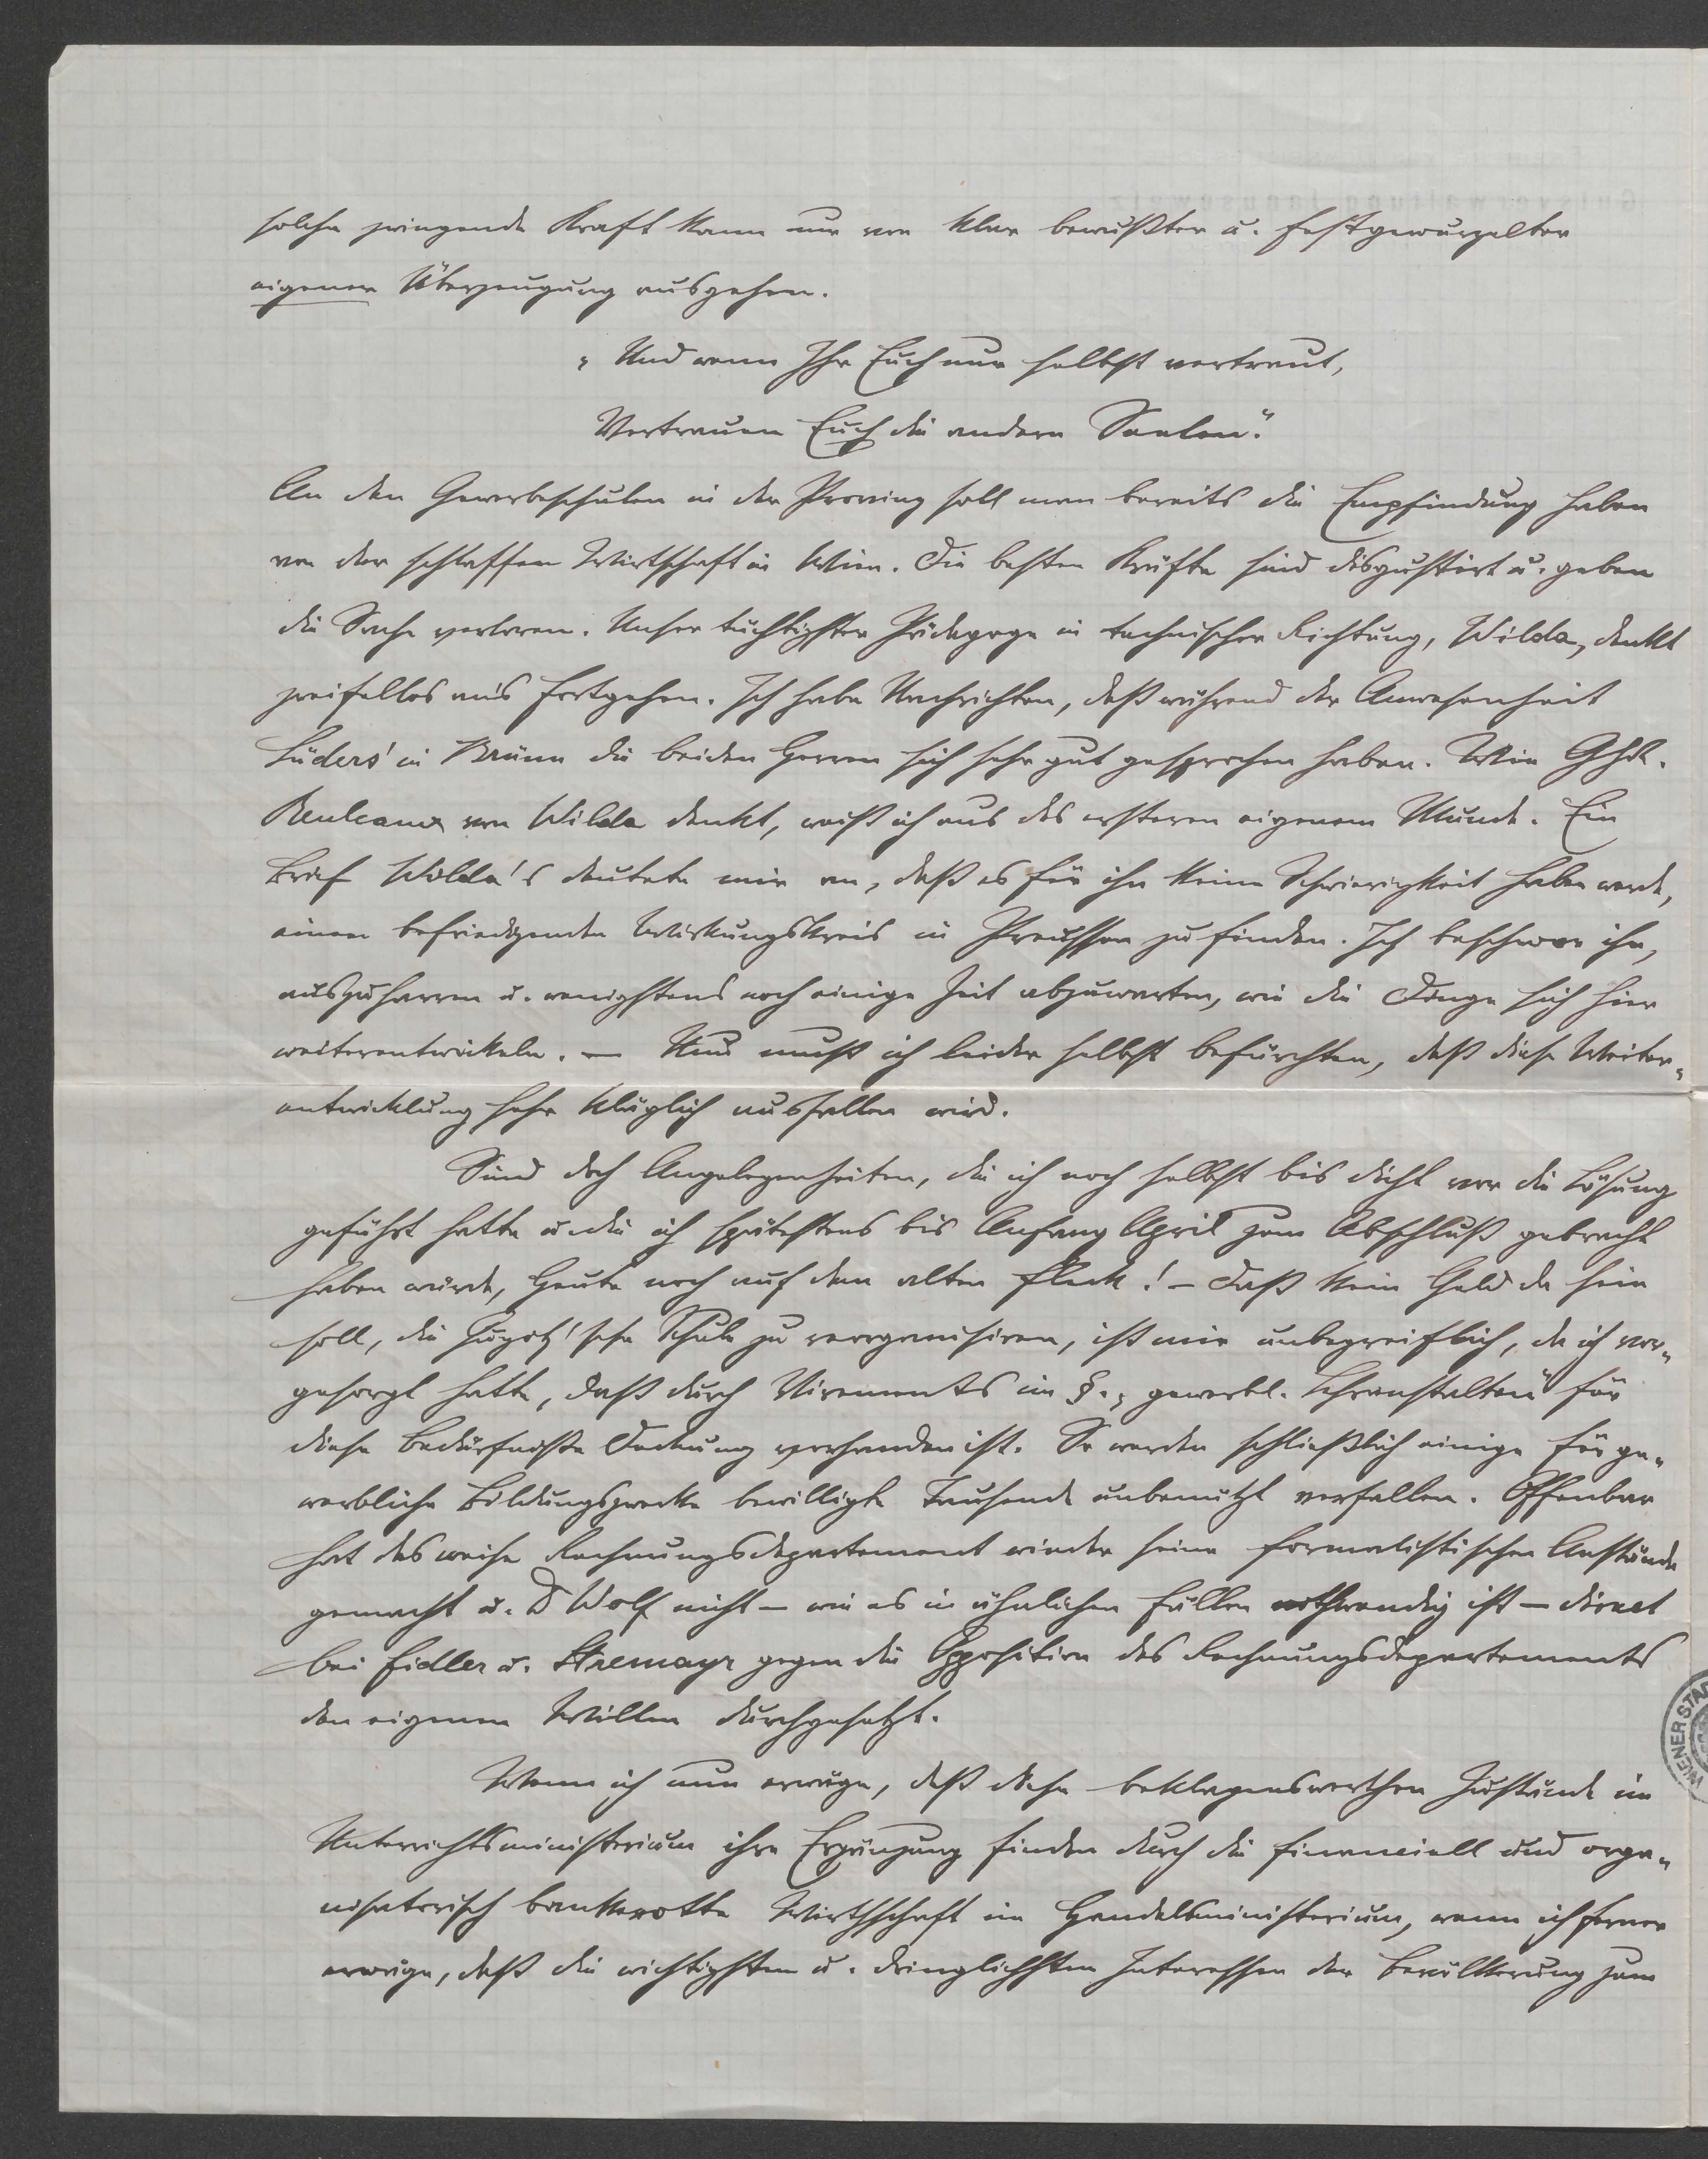 solche zwingende Kraft kann nur von klar bewußter u. festgewurzelter
eigener Überzeugung ausgehen.
„Und wenn Ihr Euch nur selbst vertraut,
Vertrauen Euch die andern Seelen“.
An den Gewerbeschulen in der Provinz soll man bereits die Empfindung haben
von der schlaffen Wirtschaft in Wien. Die besten Kräfte sind disgustirt u. geben
die Sache verloren. Unser tüchtigster Pädagoge in technischer Richtung, Wilda, denkt
zweifellos ans Fortgehen. Ich habe Nachrichten, daß während der Anwesenheit
Lüders' in Brünn die beiden Herren sich sehr gut gesprochen haben. Wie
Reuleaux von Wilda denkt, weiß ich aus des ersteren eigenem Munde. Ein
Brief Wilda's deutete mir an, daß es für ihn keine Schwierigkeit haben werde,
einen befriedigenden Wirkungskreis in Preussen zu finden. Ich beschwor ihn,
auszuharren u. wenigstens noch einige Zeit abzuwarten, wie die Dinge sich hier
weiterentwickeln. — Nun muß ich leider selbst befürchten, daß diese Weiter-
entwicklung sehr kläglich ausfallen wird.
Sind doch Angelegenheiten, die ich noch selbst bis dicht vor die Lösung
geführt hatte u. die ich spätestens bis Anfang April zum Abschluß gebracht
haben würde, heute noch auf dem alten Fleck! — Daß kein Geld da sein
soll, die 'sche Schule zu reorganisiren, ist mir unbegreiflich, da ich vor-
gesorgt hatte, daß durch Virements im §. „gewerbl. Lehranstalten“ für
diese Bedürfnisse Deckung vorhanden ist. So werden schließlich einige für ge-
werbliche Bildungszwecke bewilligte Tausende unbenützt verfallen. Offenbar
hat das weise Rechnungsdepartement wieder seine formalistischen Anstände
gemacht u. Dr Wolf nicht — wie es in ähnlichen Fällen nothwendig ist — direct
bei Fidler u. Stremayr gegen die Opposition des Rechnungsdepartements
den eigenen Willen durchgesetzt.
Wenn ich nun erwäge, daß diese beklagenswerthen Zustände im
Unterrichtsministerium ihre Ergänzung finden durch die financiell und orga-
nisatorisch bankerotte Wirthschaft im Handelsministerium, wenn ich ferner
erwäge, daß die wichtigsten u. dringlichsten Interessen der Bevölkerung zum
WIENER STA